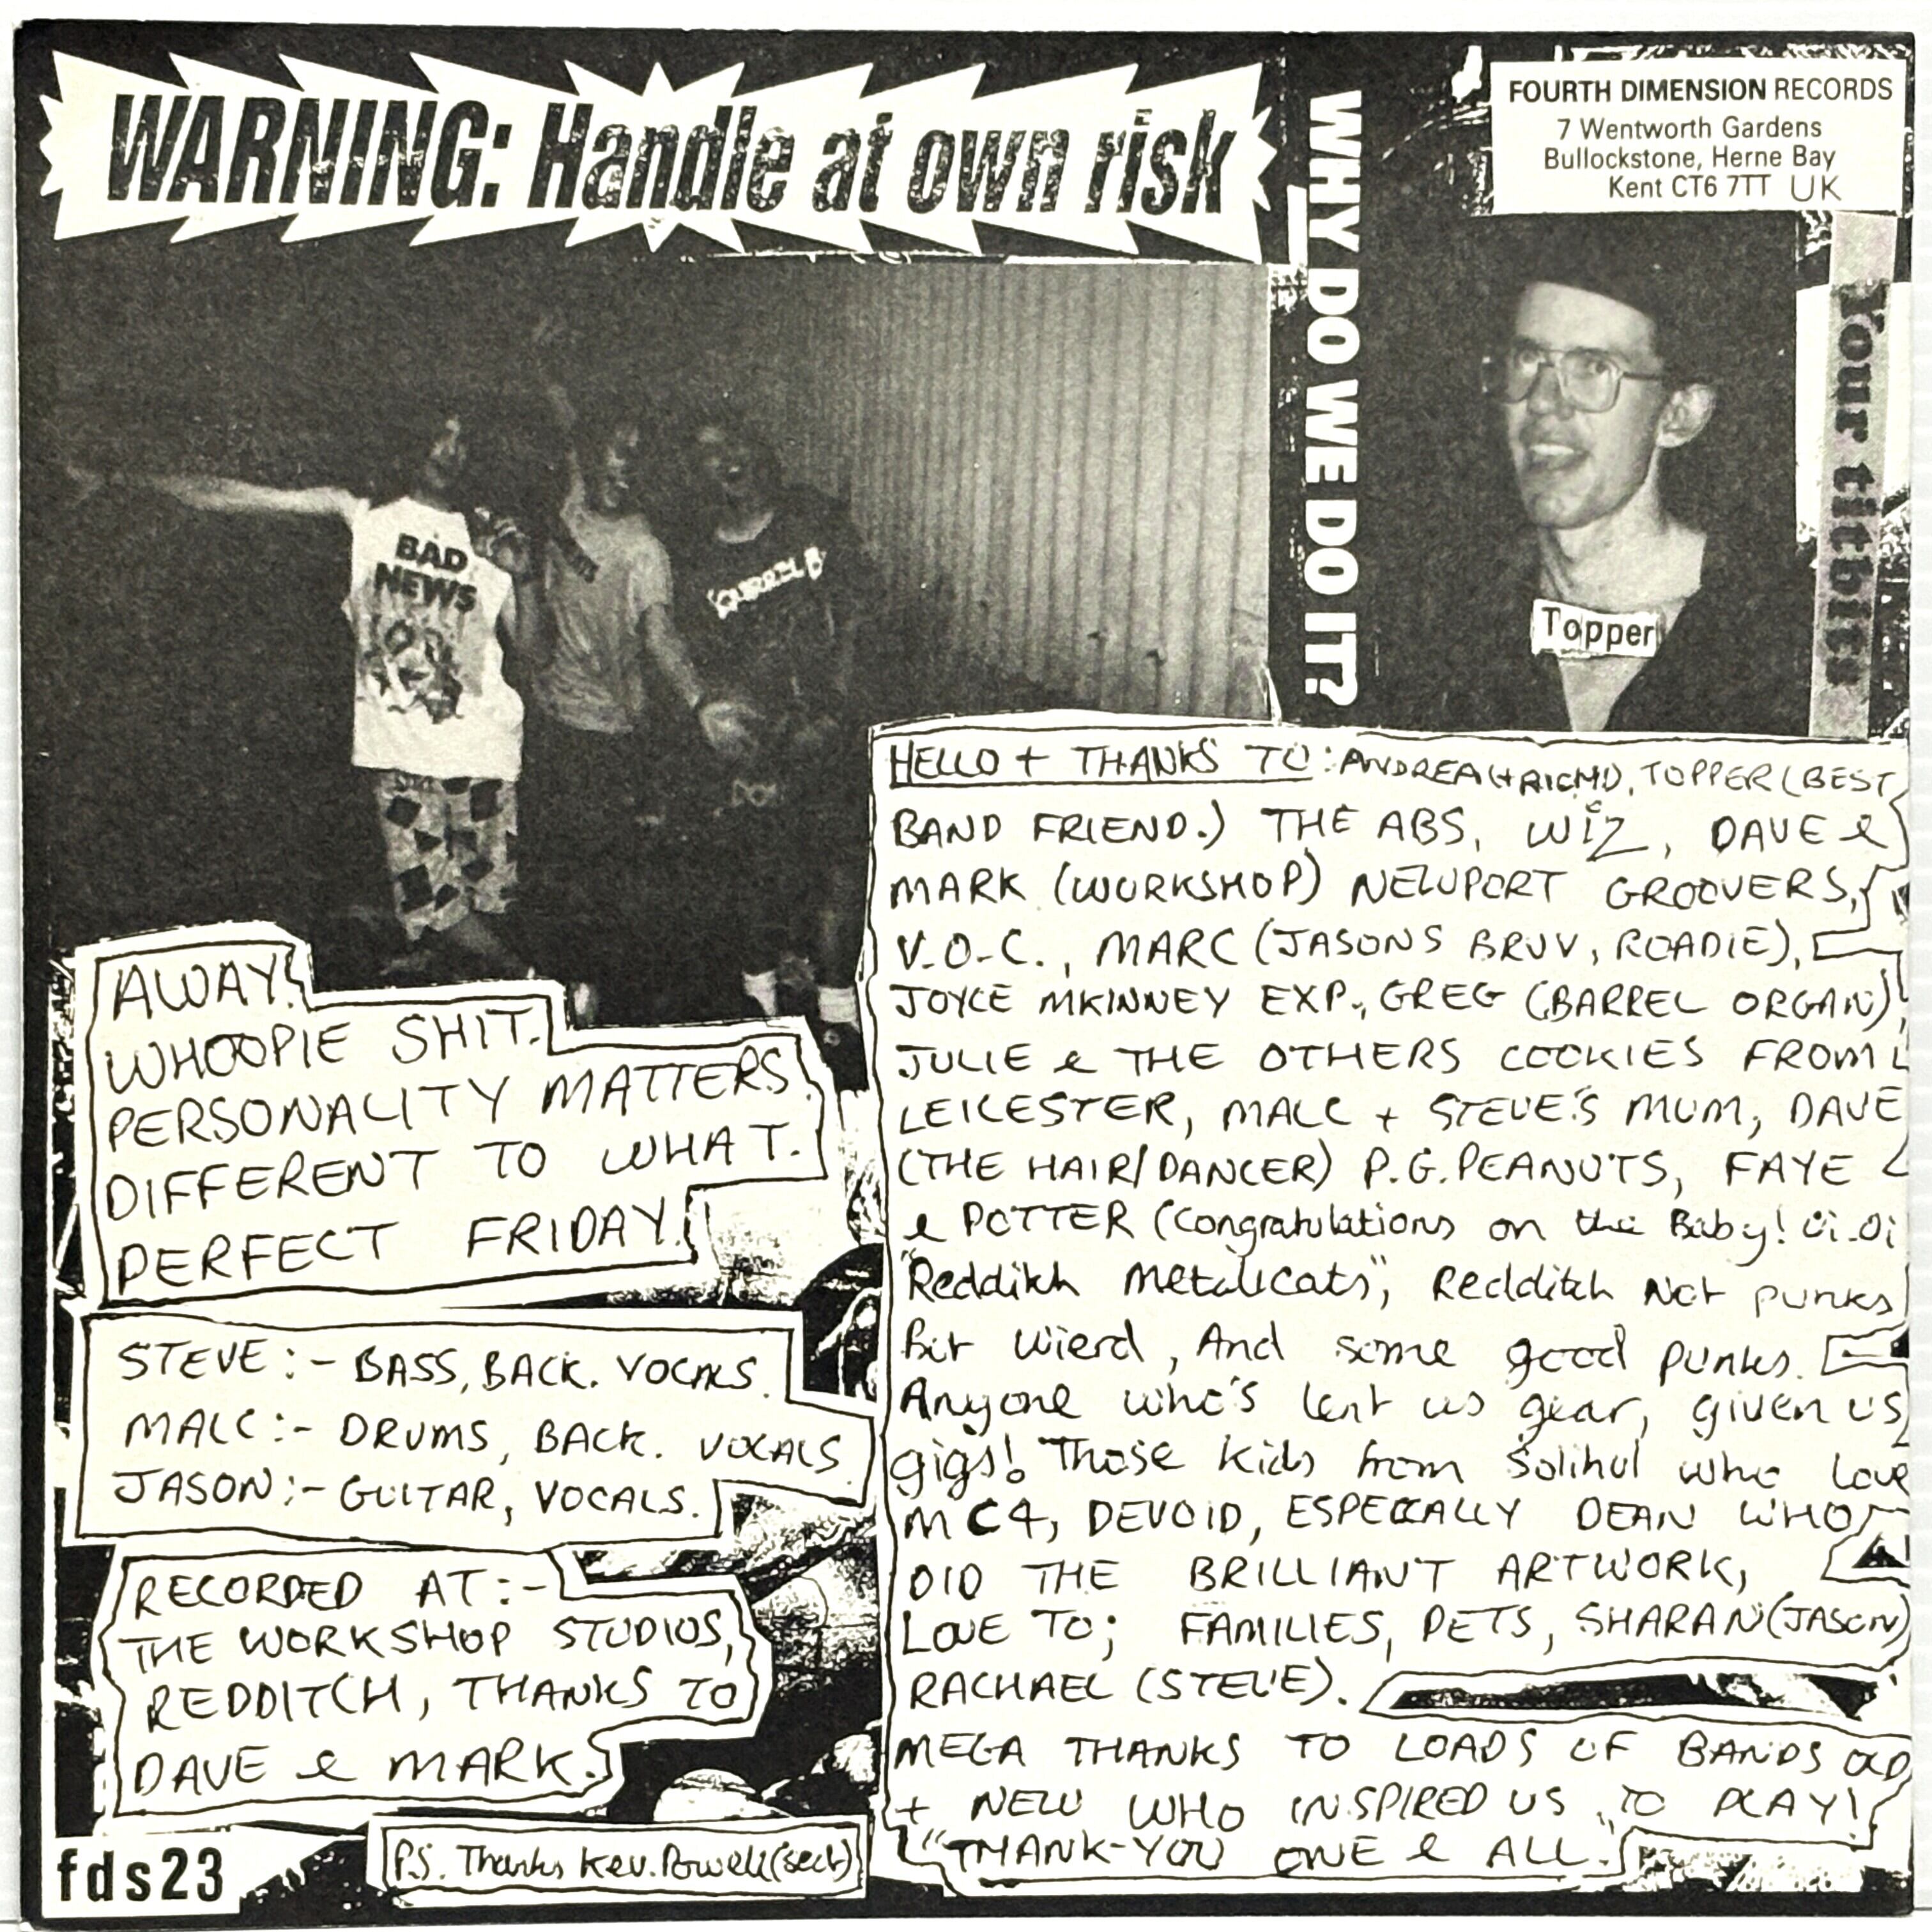 WARNING: Handle at own risk
WHY DO WE DO IT?
FOURTH DIMENSION RECORDS
7 Wentworth Gardens
Bullockstone, Herne Bay
Kent CT6 7TT UK
Your titbits
Topper
BAD
NEWS
HELLO + THANKS TO: ANDREA (+ RICH!), TOPPER (BEST
BAND FRIEND.) THE ABS, WiZ, DAVE &
MARK (WORKSHOP) NEWPORT GROOVERS,
V.O.C., MARC (JASONS BRUV, ROADIE),
JOYCE MKINNEY EXP., GREG (BARREL ORGAN),
JULIE & THE OTHERS COOKIES FROM
LEICESTER, MALC + STEVE'S MUM, DAVE
(THE HAIR/DANCER) P.G. PEANUTS, FAYE
& POTTER (Congratulations on the Baby! Oi-Oi
"Redditch Metalicats", Redditch Not punks
But wierd, And some good punks.
Anyone who's lent us gear, given us
gigs! Those kids from Solihul who love
MC4, DEVOID, ESPECIALLY DEAN WHO
DID THE BRILLIANT ARTWORK,
LOVE TO; FAMILIES, PETS, SHARAN (JASON)
RACHAEL (STEVE).
MEGA THANKS TO LOADS OF BANDS OLD
+ NEW WHO INSPIRED US TO PLAY!
"THANK-YOU ONE & ALL.
AWAY.
WHOOPIE SHIT.
PERSONALITY MATTERS.
DIFFERENT TO WHAT.
PERFECT FRIDAY.
STEVE:- BASS, BACK. VOCALS.
MALC:- DRUMS, BACK. VOCALS.
JASON:- GUITAR, VOCALS.
RECORDED AT:-
THE WORKSHOP STUDIOS,
REDDITCH, THANKS TO
DAVE & MARK.
P.S. Thanks Kev. Powell (sect)
fds23